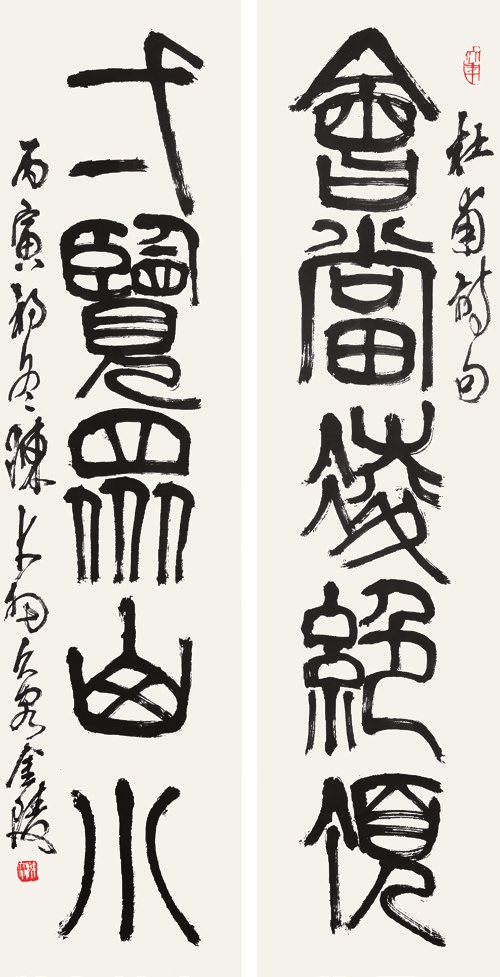 杜甫詩句
會當凌絕頂
弌覽眾山小
丙寅初冬陳大羽久客金陵